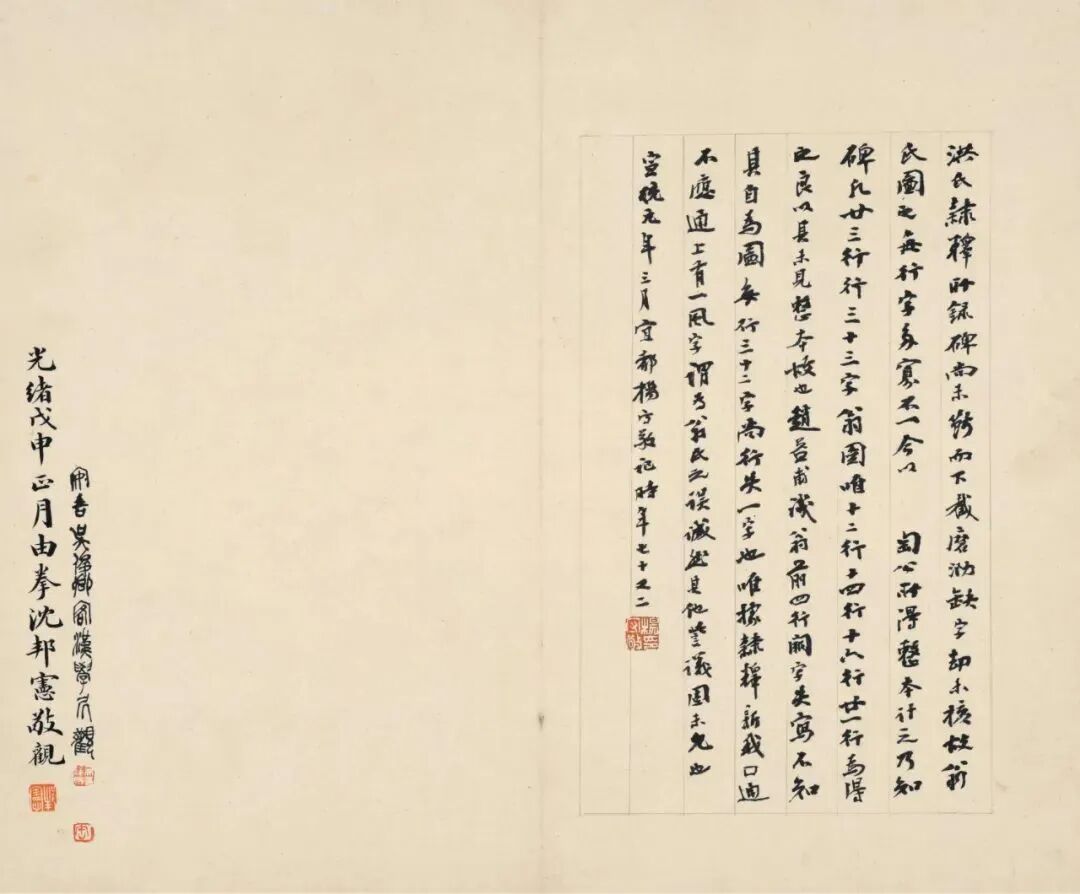 洪氏隸釋所錄碑尚未斷而下截磨泐缺字却未核故翁
氏圖之每行字多寡不一今以 匋公所得整本計之乃知
碑凡廿三行行三十三字翁圖唯十二行十四行十六行廿一行為得
之良以其未見整本故也趙益甫譏翁前四行闕字失寫不知
其自為圖每行三十二字尚行失一字也唯據隸釋新我口通
不應通上有一風字謂為翁氏之誤誠然其他訾議固未允也
宣統元年三月宜都楊守敬記時年七十又二
楊守敬
光緒戊申正月由拳沈邦憲敬觀